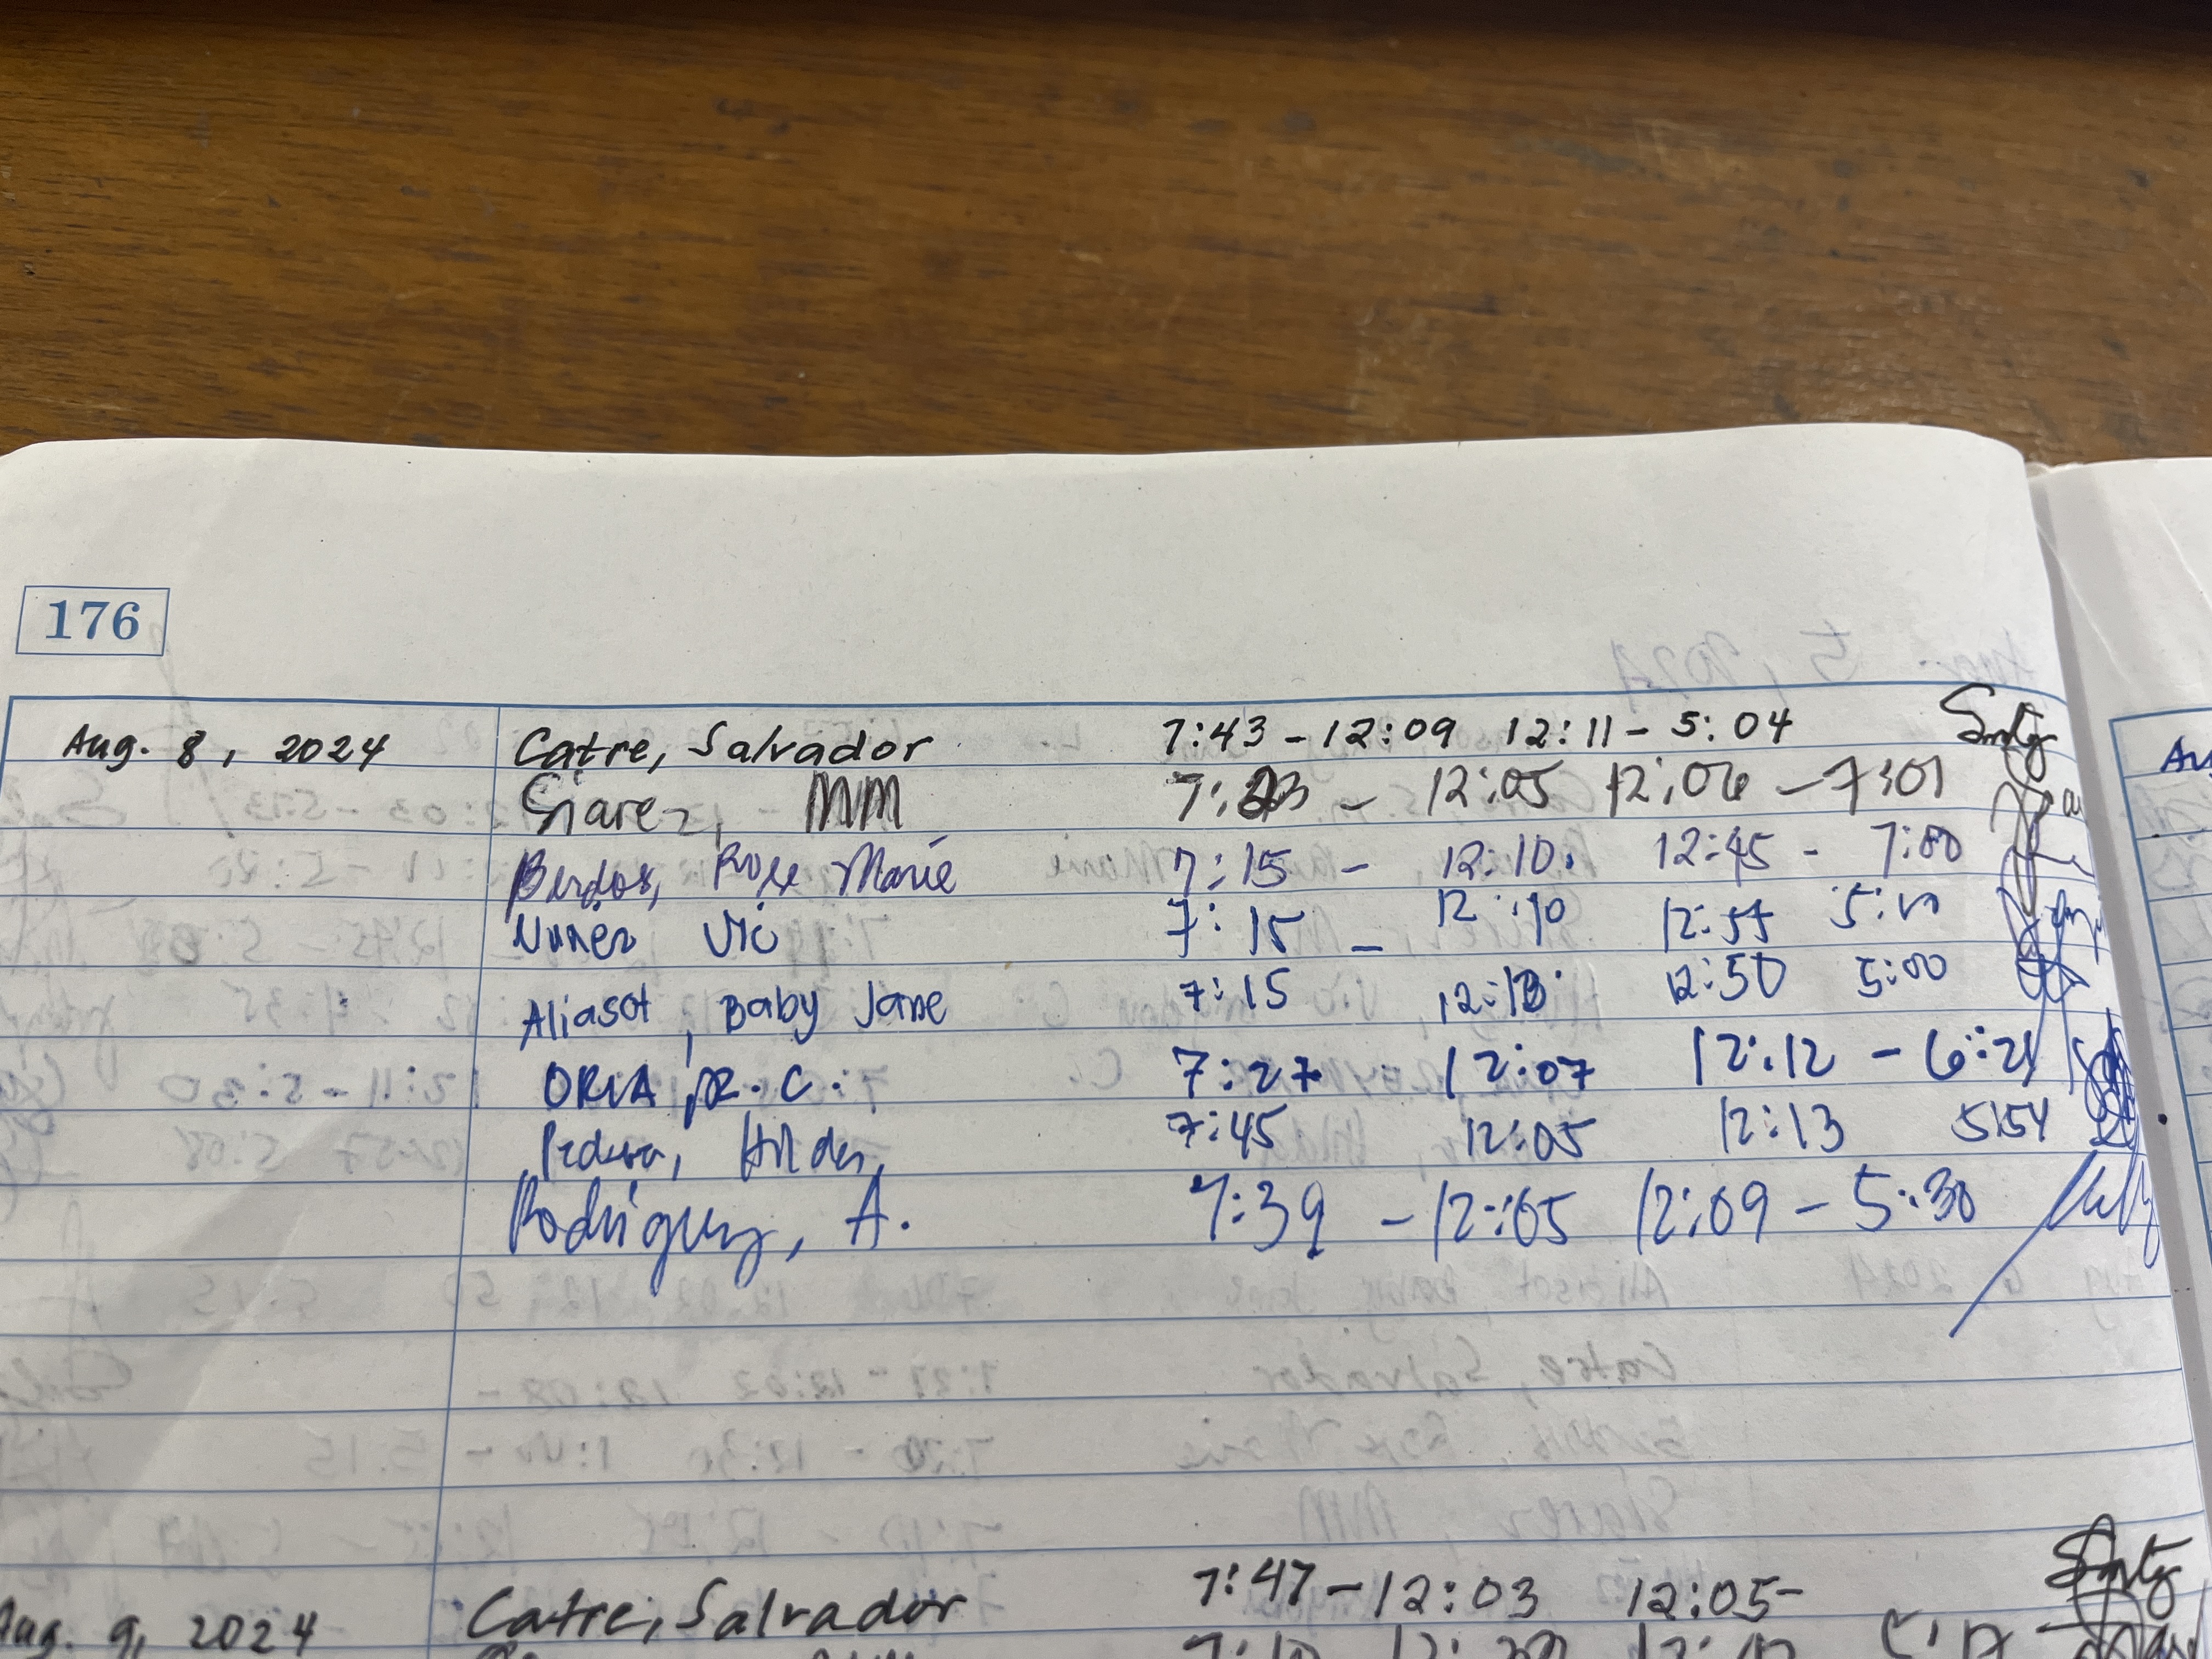 176
Aug. 8, 2024 Catre, Salvador 7:43 - 12:09 12:11 - 5:04
Siarez, MM - 12:05 12:06 - 7:01
Rose Marie 7:15 - 12:10. 12:45 - 7:00
Nuñez Vic 7:15 - 12:10 12:55 5:10
Aliasot, Baby Jane 7:15 12:13 12:50 5:00
ORIA, R. C. 7:27 12:07 12:12 - 6:21
7:45 12:05 12:13 5:54
Rodriguez, A. 7:39 - 12:05 12:09 - 5:30
Aug. 9, 2024 Catre, Salvador 7:47 - 12:03 12:05-